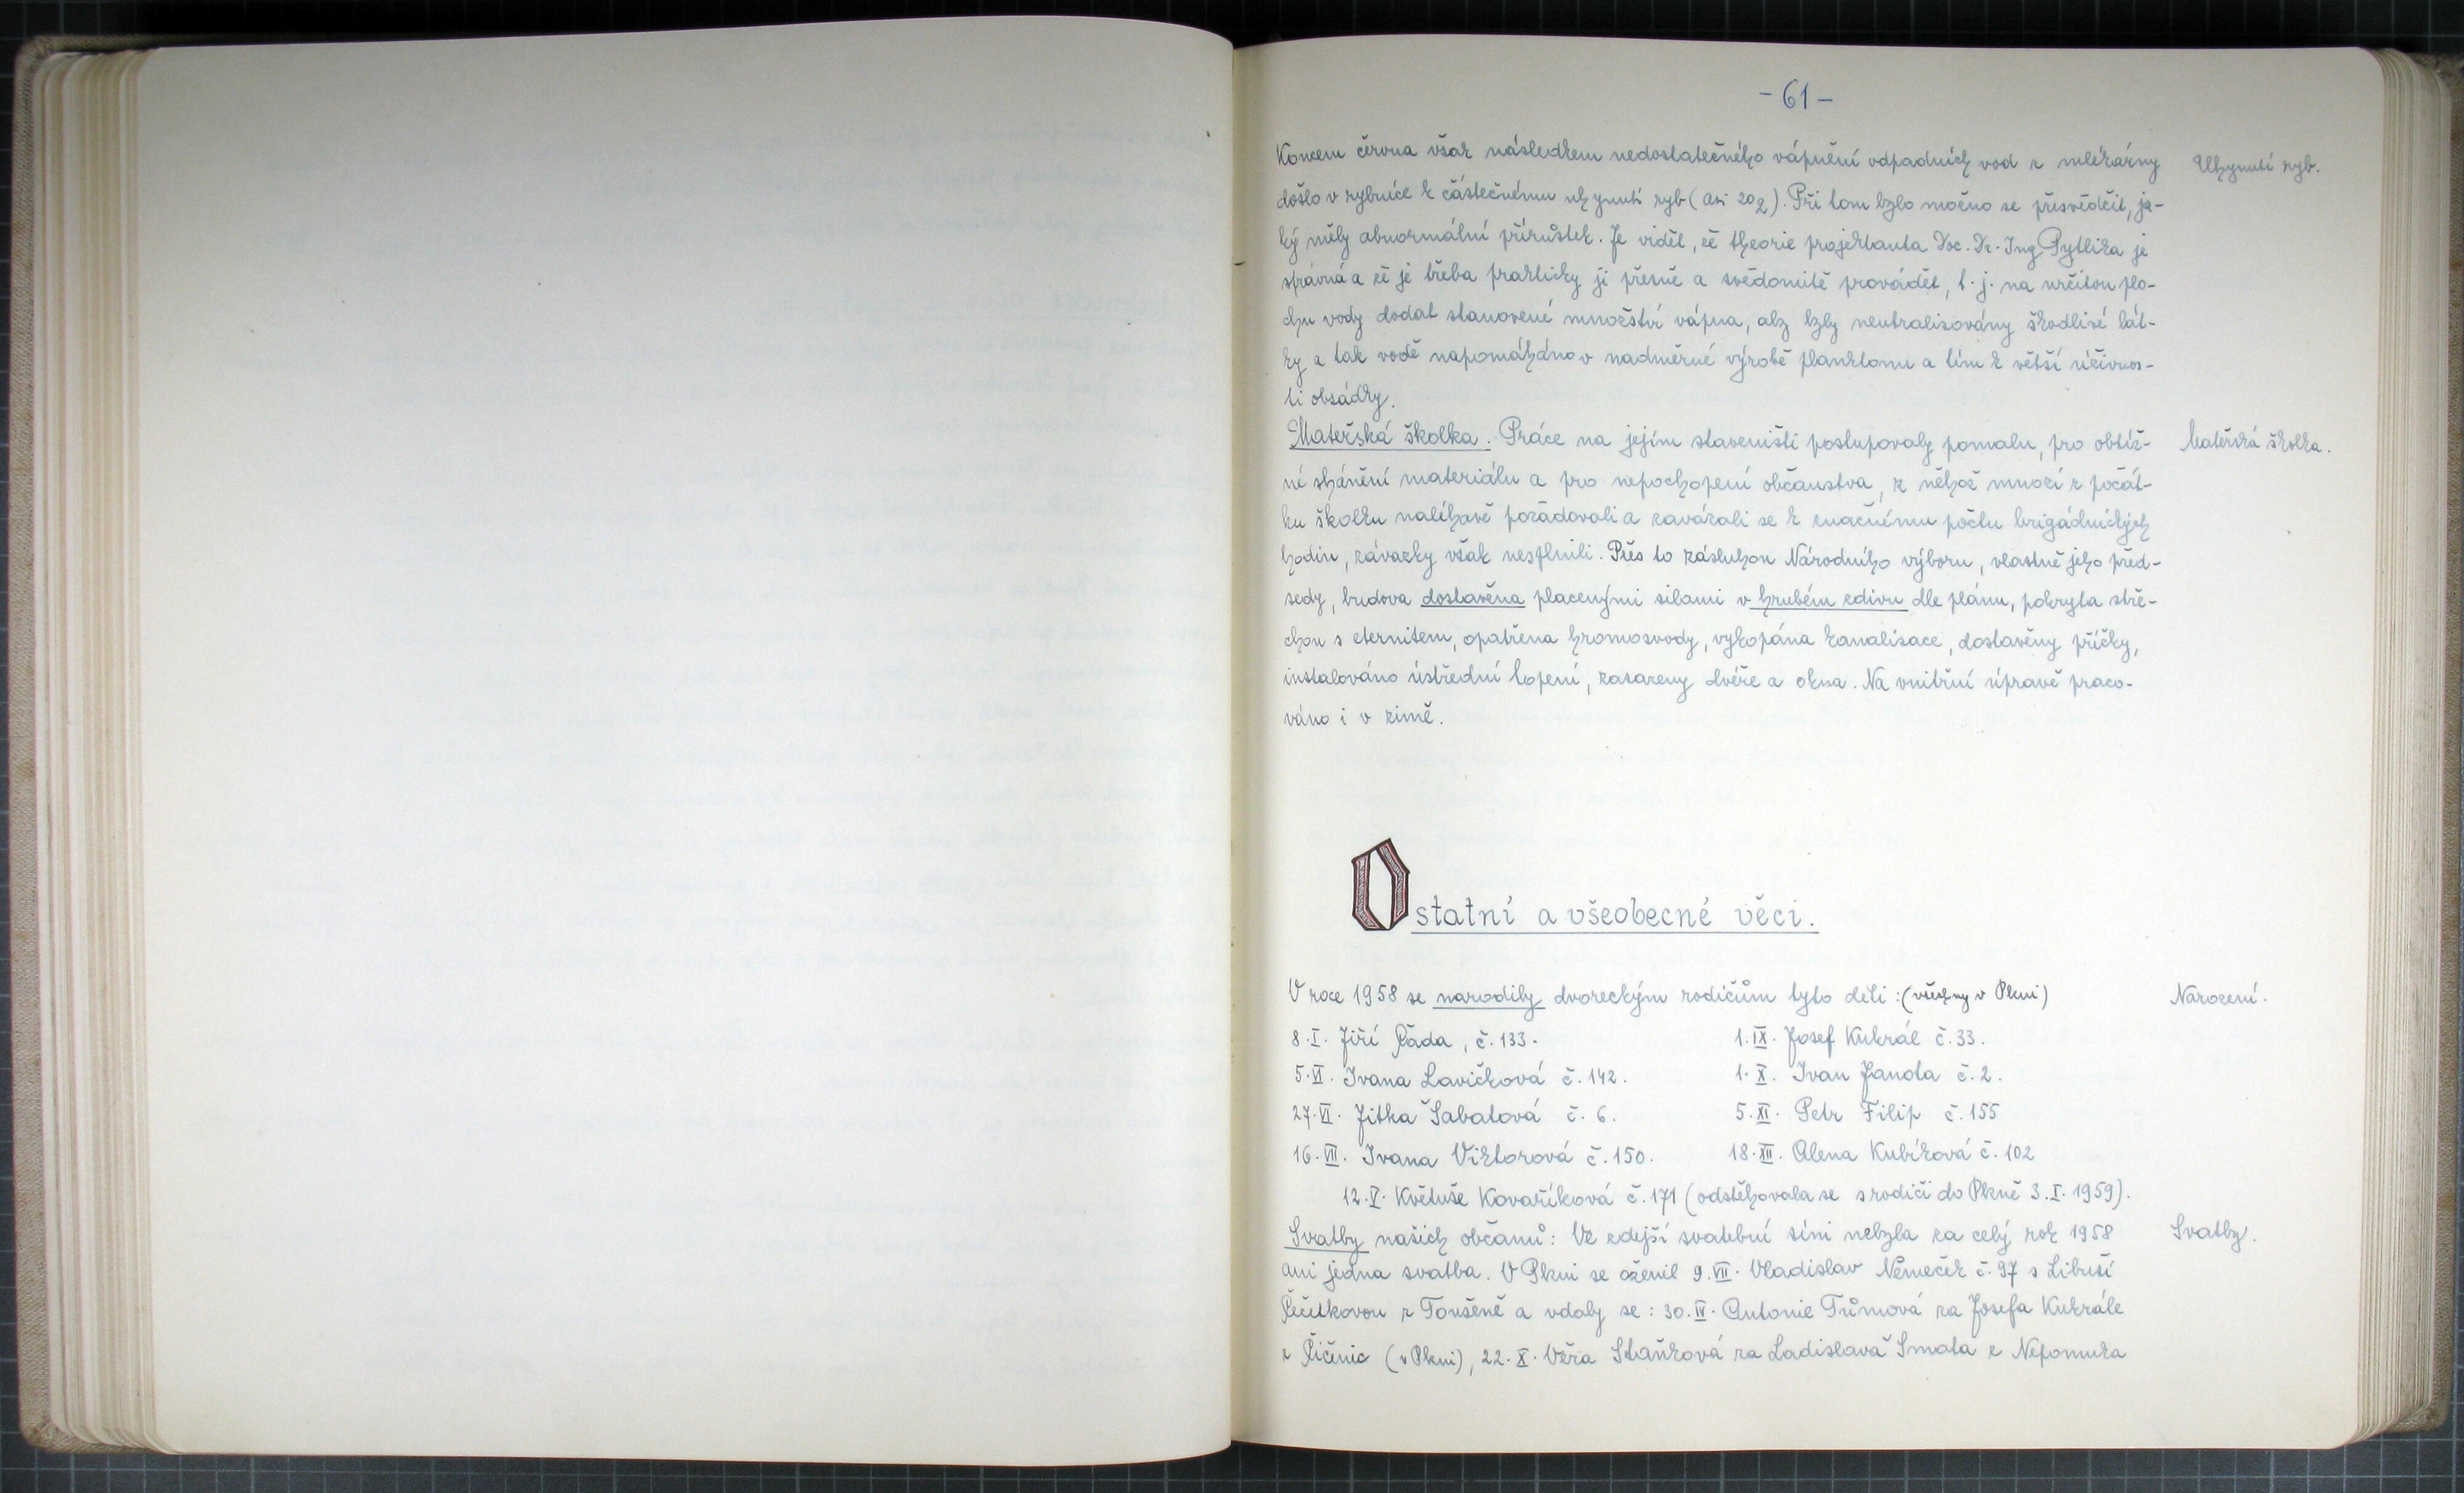 - 61 -
Koncem června však následkem nedostatečného vápnění odpadních vod z mlékárny
Uhynutí ryb.
došlo v rybníce k částečnému uhynutí ryb (asi 20q). Při tom bylo možno se přesvědčit, ja-
ký měly abnormální přírůstek. Je vidět, že theorie projektanta Doc. Dr. Ing Pytlíka je
správná a že je třeba prakticky ji přesně a svědomitě provádět, t. j. na určitou plo-
chu vody dodat stanovené množství vápna, aby byly neutralisovány škodlivé lát-
ky a tak vodě napomáháno v nadměrné výrobě planktonu a tím k větší úživnos-
ti obsádky.
Mateřská školka. Práce na jejím staveništi postupovaly pomalu, pro obtíž-
Mateřská školka.
né shánění materiálu a pro nepochopení občanstva, z něhož mnozí z počát-
ku školku naléhavě požadovali a zavázali se k značnému počtu brigádnických
hodin, závazky však nesplnili. Přes to zásluhou Národního výboru, vlastně jeho před-
sedy, budova dostavěna placenými silami v hrubém zdivu dle plánu, pokryta stře-
chou s eternitem, opatřena hromosvody, vykopána kanalisace, dostavěny příčky,
instalováno ústřední topení, zasazeny dvéře a okna. Na vnitřní úpravě praco-
váno i v zimě.
Ostatní a všeobecné věci.
V roce 1958 se narodily dvoreckým rodičům tyto děti : (všechny v Plzni)
Narození.
8. I. Jiří Řáda, č. 133.
1. IX. Josef Kukrál č. 33.
5. VI. Ivana Lavičková č. 142.
1. X. Ivan Janda č. 2.
27. VI. Jitka Šabatová č. 6.
5. XI. Petr Filip č. 155
16. VII. Ivana Viktorová č. 150.
18. XII. Alena Kubíková č. 102
12. V. Květuše Kovaříková č. 171 (odstěhovala se s rodiči do Plzně 3. I. 1959).
Svatby našich občanů: Ve zdejší svatební síni nebyla za celý rok 1958
Svatby.
ani jedna svatba. V Plzni se oženil 9. VII. Vladislav Němeček č. 97 s Libuší
Řečitkovou z Toušeně a vdaly se : 30. IV. Antonie Tůmová za Josefa Kukrále
z Číčenic (v Plzni), 22. X. Věra Staňková za Ladislava Šmata z Nepomuka